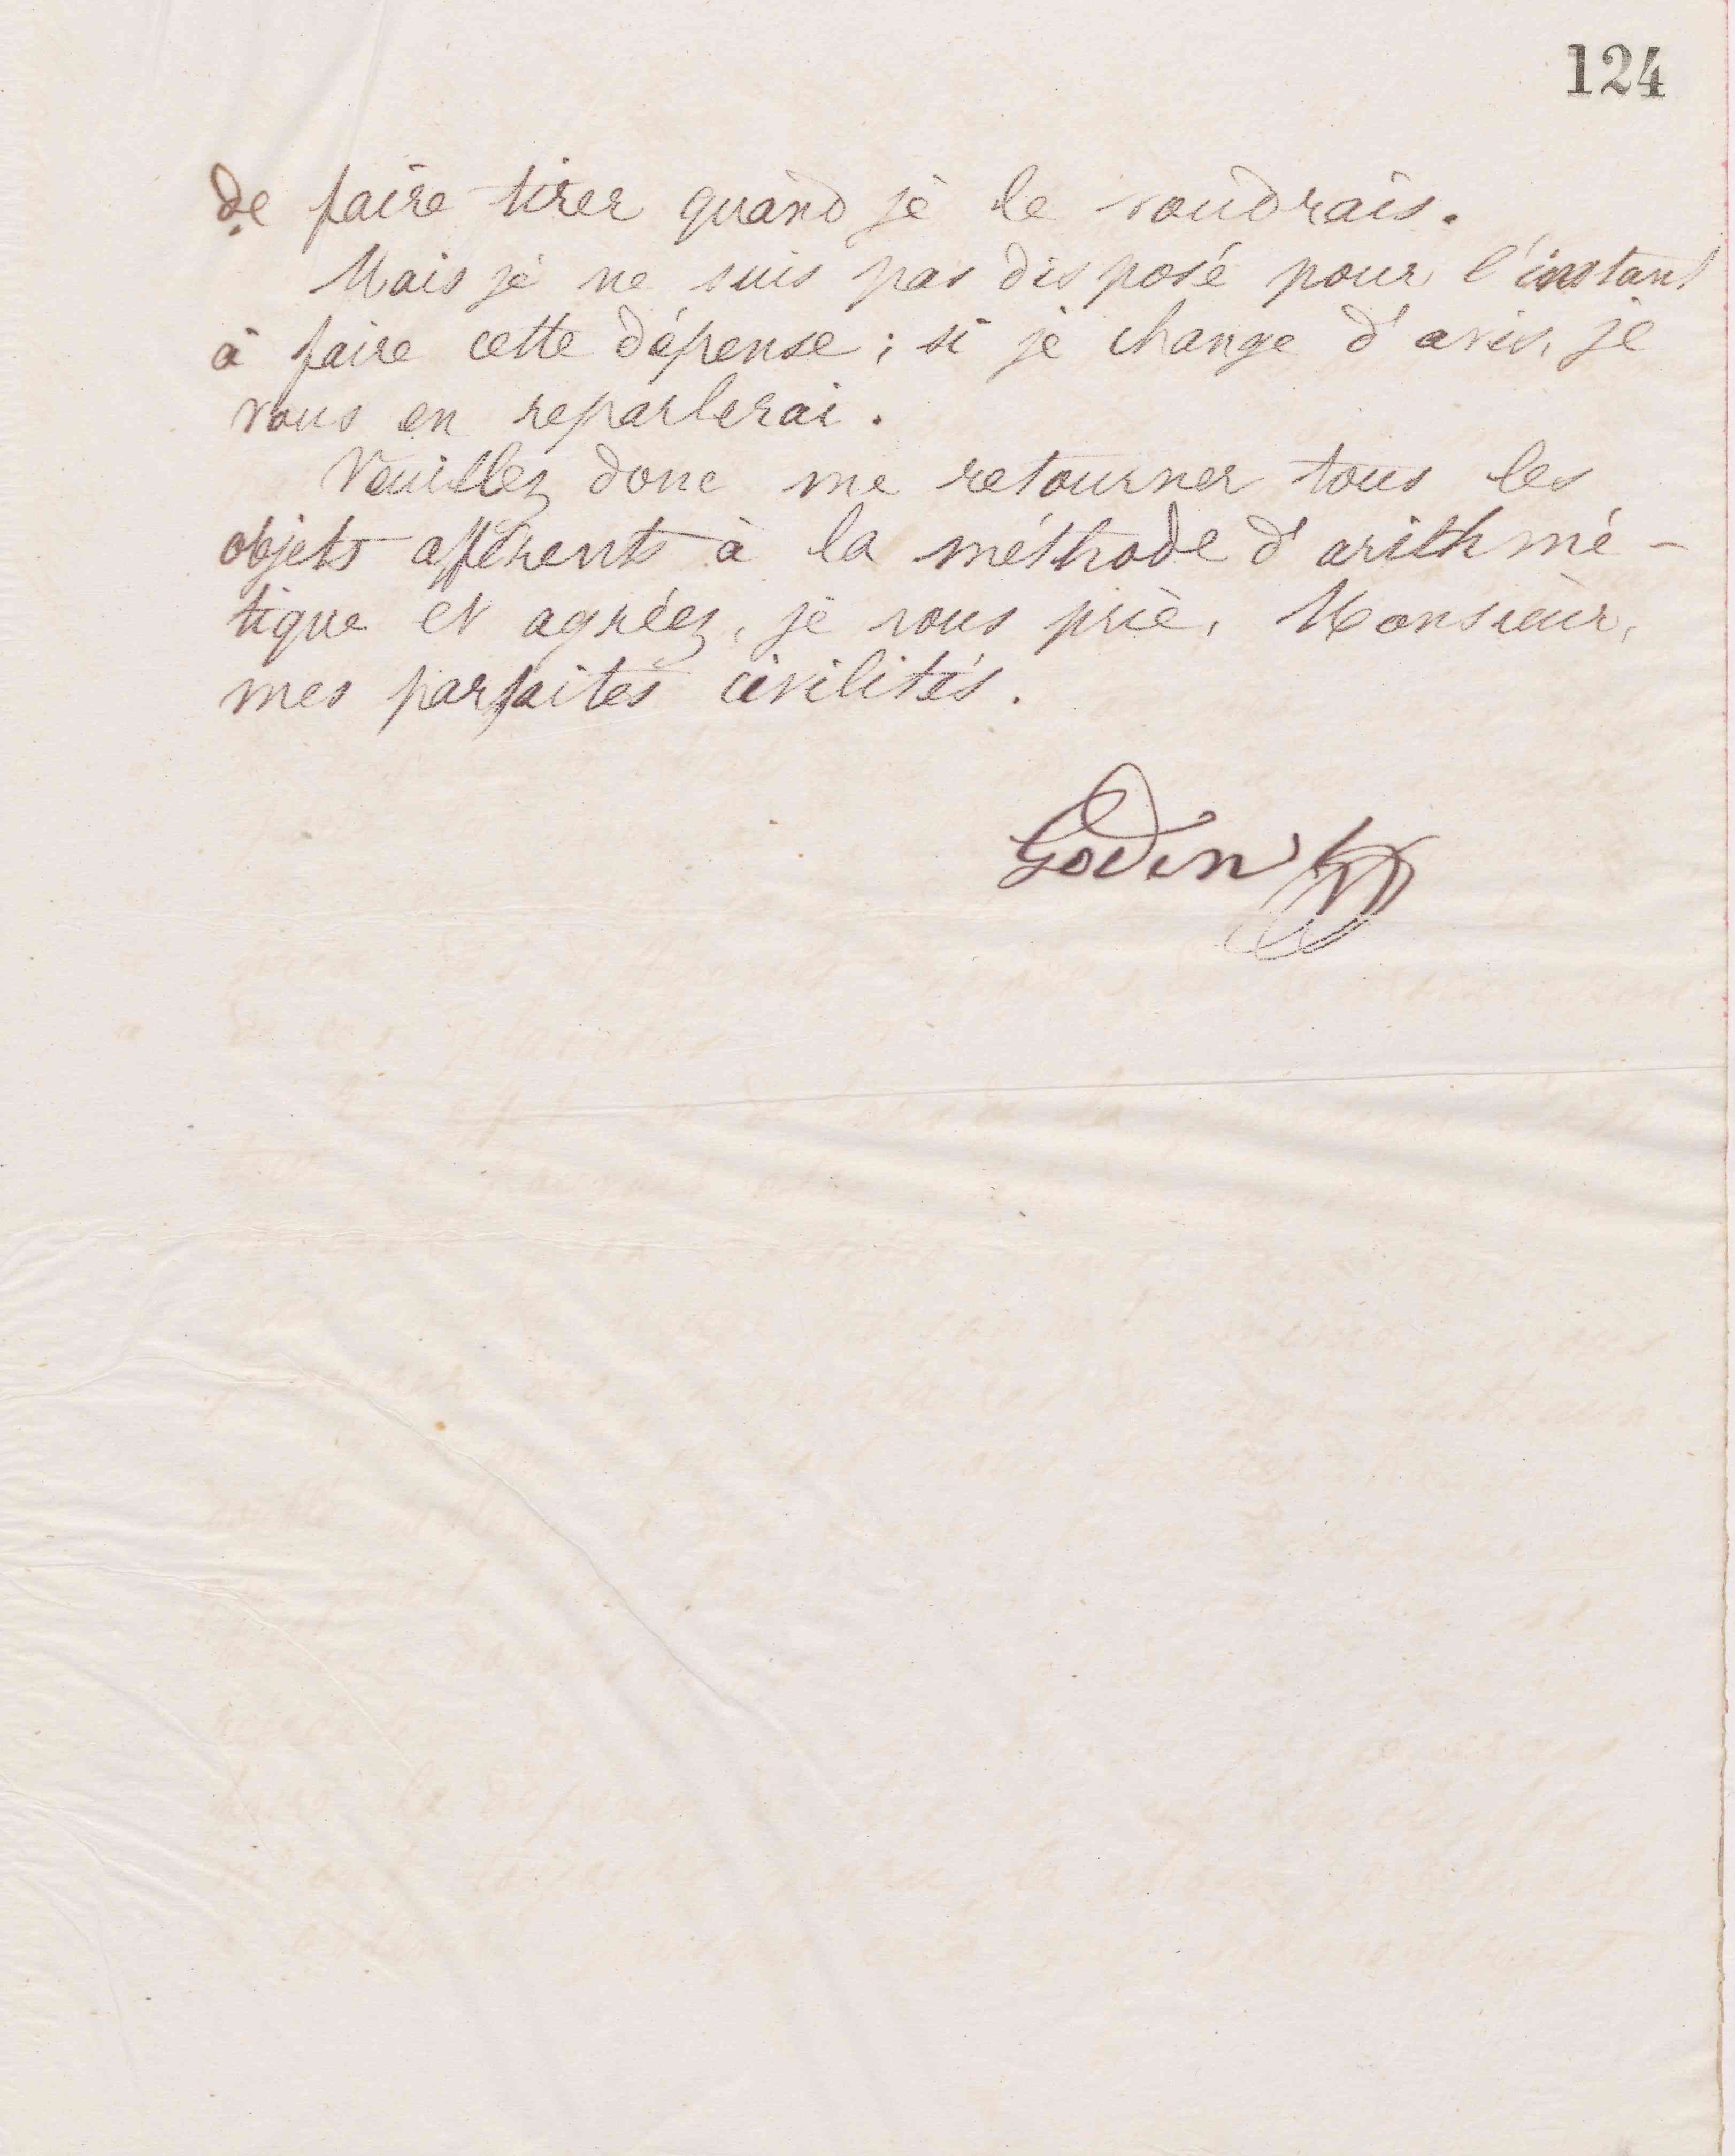 124
de faire tirer quand je le voudrais.
Mais je ne suis pas disposé pour l'instant
à faire cette dépense ; si je change d'avis, je
vous en reparlerai.
Veuillez donc me retourner tous les
objets afférents à la méthode d'arithmé-
tique et agréez, je vous prie, Monsieur,
mes parfaites civilités.
Godin